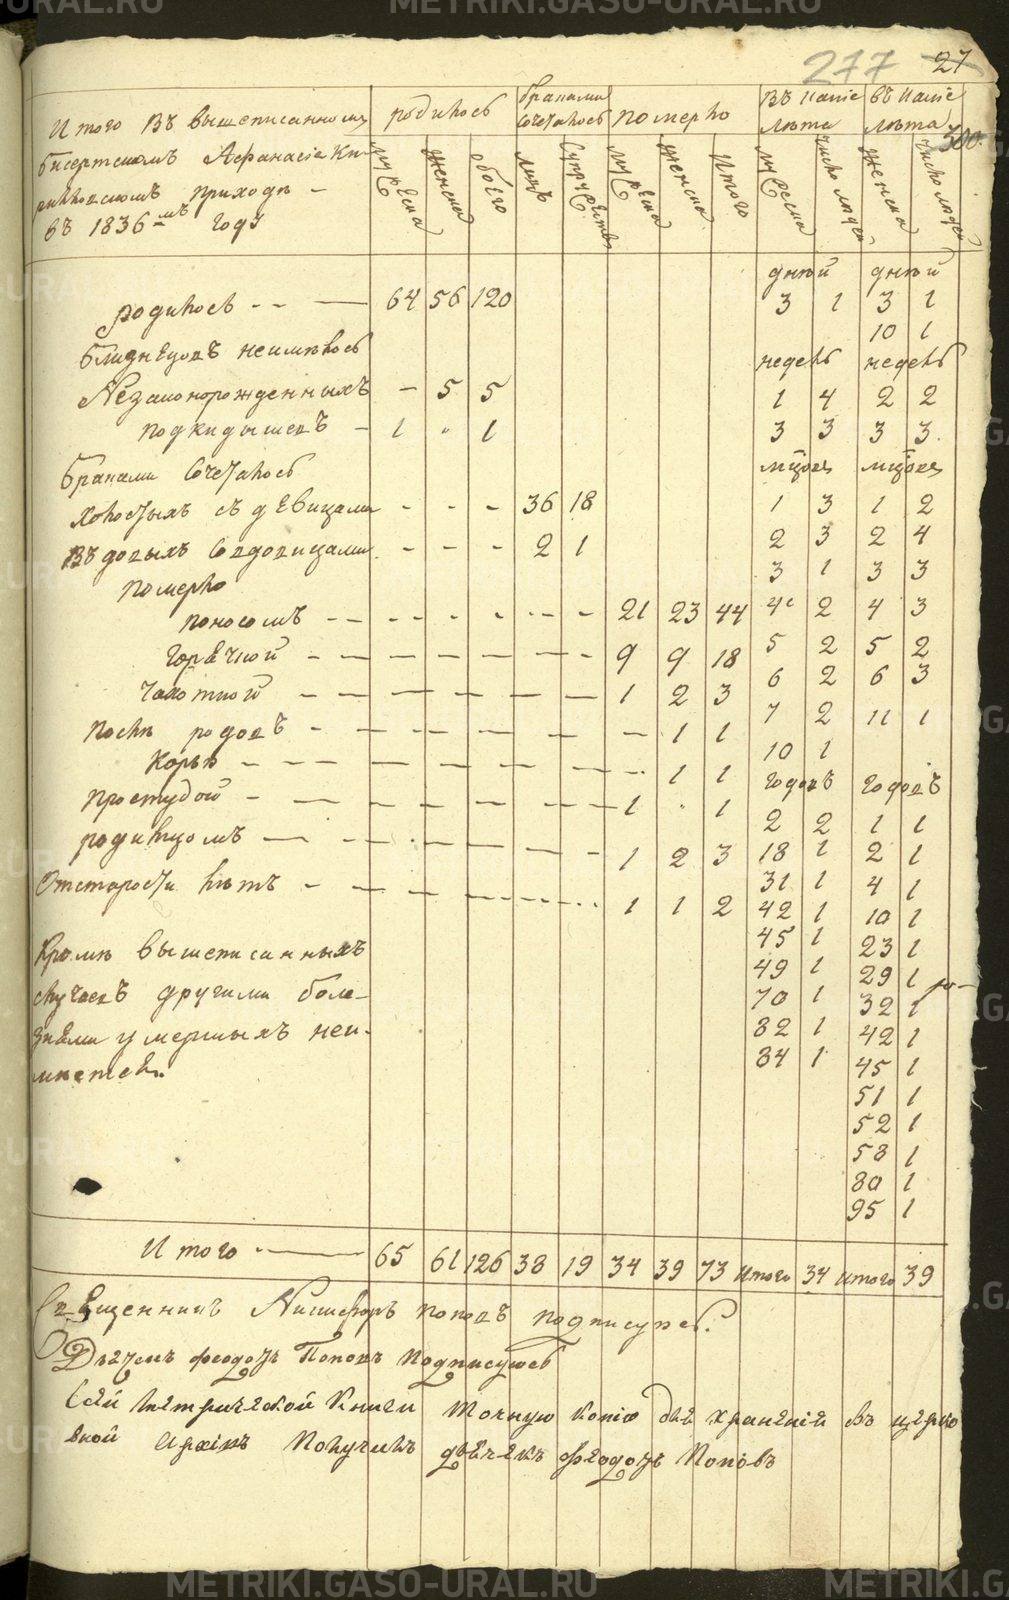 277 27
300
Итого въ вышеписанномъ
Бисертскомъ Афанасiе Ки-
рилловскомъ приходѣ -
въ 1836-мъ году
родилось
браками
сочеталось
померло
въ какiе
лѣта
въ какiе
лѣта
мужеска женска обоего лицъ супружествъ мужеска женска итого мужеска число людей женска число людей
дней дней
родилось - - — 64 56 120 3 1 3 1
10 1
близнецовъ неимѣлось недель недель
Незаконорожденныхъ - 5 5 1 4 2 2
подкидышевъ - 1 " 1 3 3 3 3
браками сочеталось мцовъ мцовъ
холостыхъ съ девицами - - - 36 18 1 3 1 2
въдовыхъ совдовицами - - - 2 1 2 3 2 4
померло 3 1 3 3
поносомъ - - - 21 23 44 4 2 4 3
горячкой - - - 9 9 18 5 2 5 2
чахоткой - - - 1 2 3 6 2 6 3
послѣ родовъ - - - 1 1 7 2 11 1
корью - - - 1 1 10 1
годовъ годовъ
простудой - - - 1 " 1 2 2 1 1
родимцомъ - - - 1 2 3 18 1 2 1
31 1 4 1
Отстарости лѣтъ - - - 1 1 2 42 1 10 1
45 1 23 1
Кромѣ вышеписанныхъ 49 1 29 1
случаевъ другими боле- 70 1 32 1
знями умершихъ неи- 82 1 42 1
мѣется. 84 1 45 1
51 1
52 1
58 1
80 1
95 1
Итого - — 65 61 126 38 19 34 39 73 Итого 34 итого 39
Священникъ Никифоръ Поповъ подписуюсь.
Дьячекъ Феодоръ Поповъ Подписуюсь
Сей метрической книги точную копiю для хранѣнiй въ церко
вной архивъ Получилъ дьячекъ Феодоръ Поповъ
METRIKI.GASO-URAL.RU